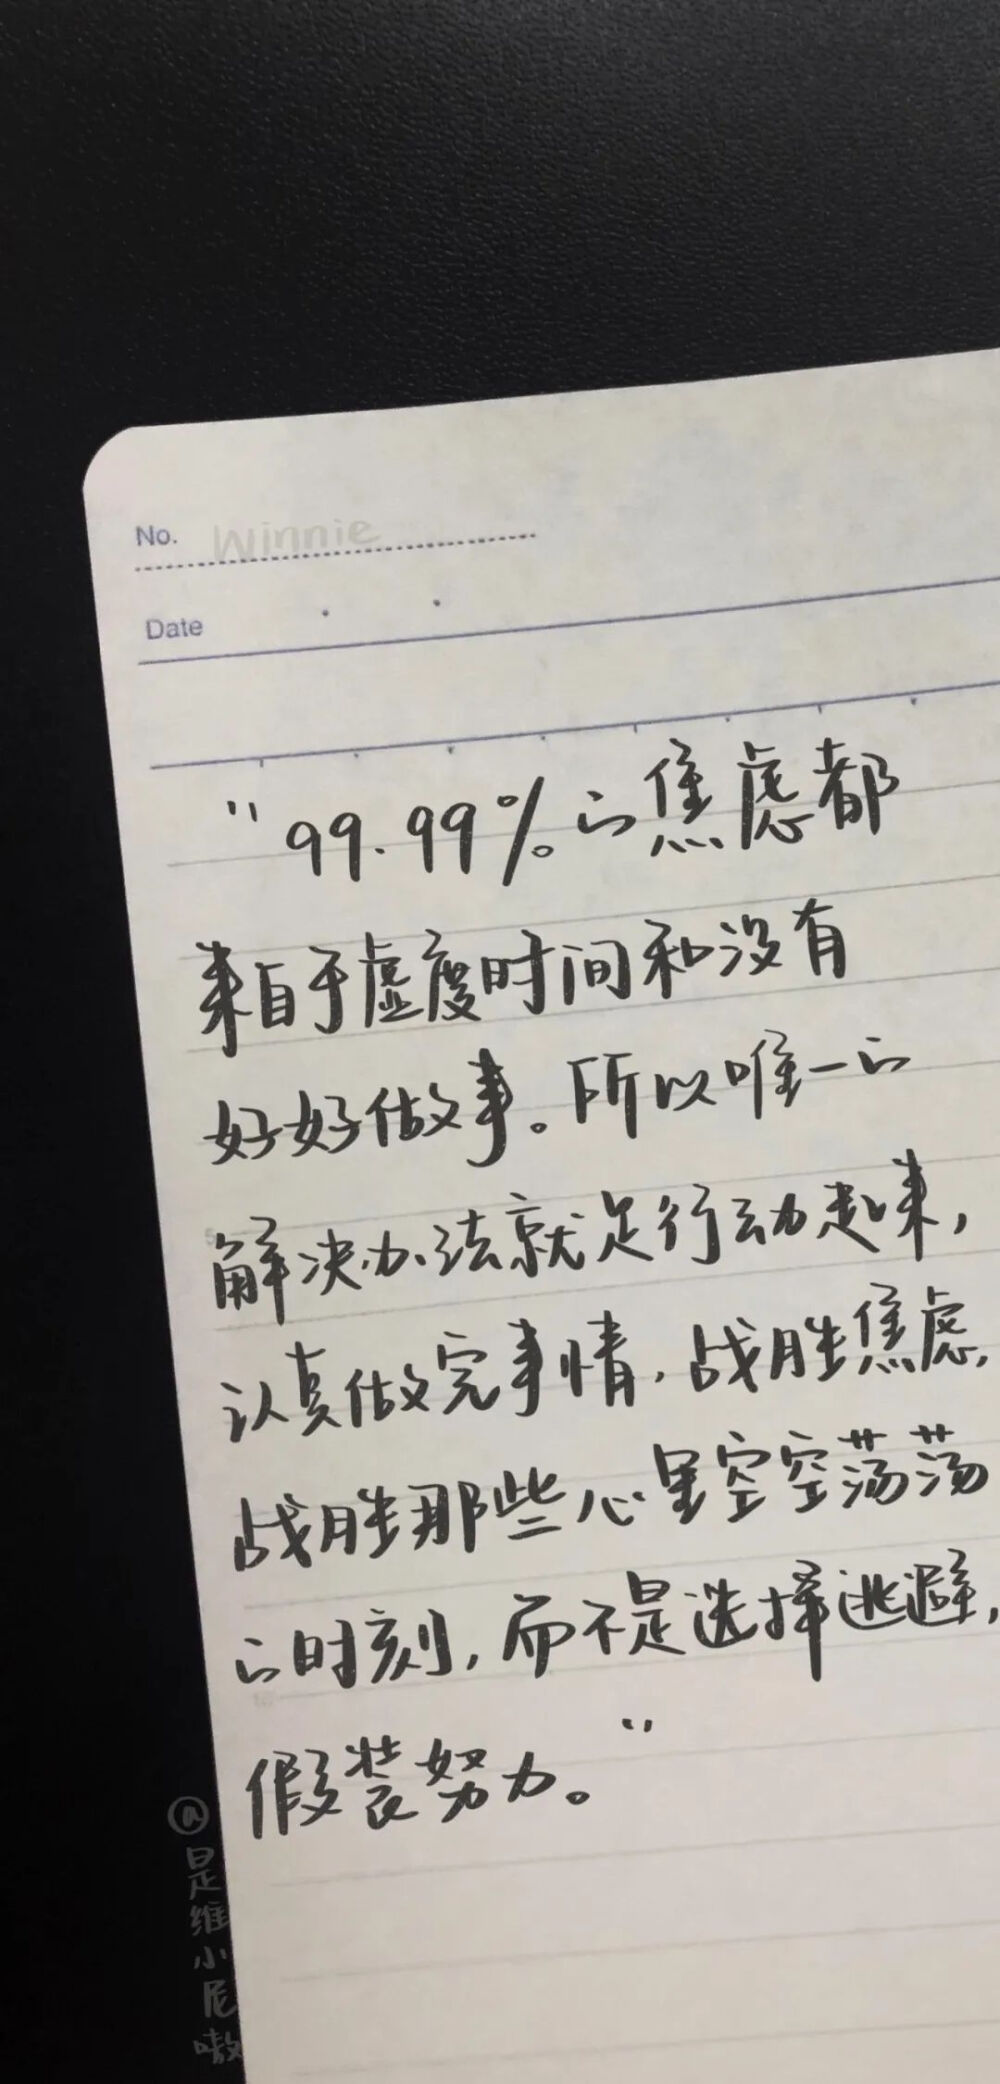 No. Winnie
Date
"99.99%的焦虑都
来自于虚度时间和没有
好好做事。所以唯一的
解决办法就是行动起来,
认真做完事情,战胜焦虑,
战胜那些心里空空荡荡
的时刻,而不是选择逃避,
假装努力。"
@是维小尼嗷